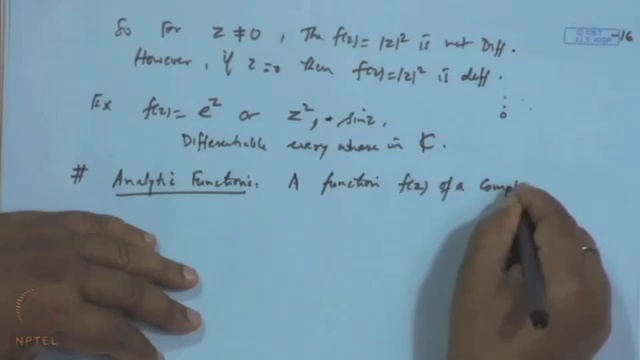 So For z ≠ 0, The f(z) = |z|² is not Diff.
However, if z = 0 then f(z) = |z|² is diff.
Ex f(z) = e^z or z², sin z,
Differentiable every where in ₵.
# Analytic Functions: A function f(z) of a comp
NPTEL